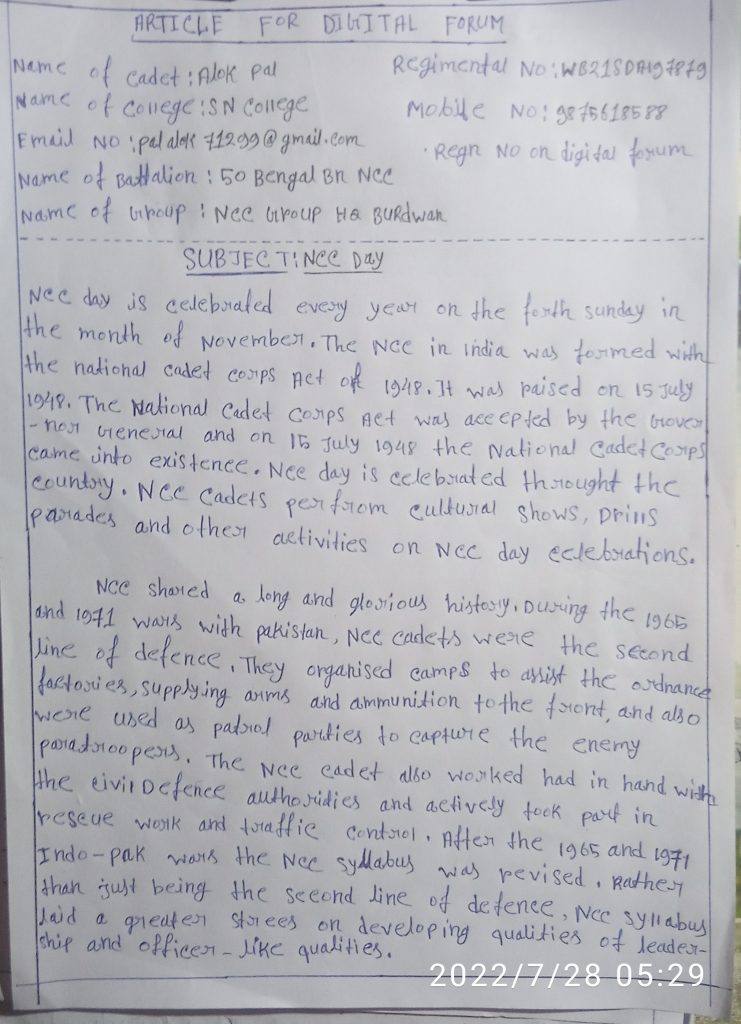 ARTICLE FOR DIGITAL FORUM
Name of cadet : Alok Pal
Regimental No : WB21SDA197879
Name of College : SN College
Mobile No : 9875618588
Email No : palalok71299@gmail.com
Regn No on digital forum
Name of Battalion : 50 Bengal Bn NCC
Name of Group : NCC Group HQ Burdwan
SUBJECT : NCC Day
NCC day is celebrated every year on the forth sunday in
the month of November. The NCC in india was formed with
the national cadet corps Act of 1948. It was raised on 15 July
1948. The National Cadet Corps Act was accepted by the Gover
-nor General and on 15 July 1948 the National Cadet Corps
came into existence. Ncc day is celebrated throught the
country. NCC Cadets perfrom cultural shows, Drills
parades and other activities on NCC day celebrations.
NCC shared a long and glorious history. During the 1965
and 1971 wars with pakistan, NCC cadets were the second
line of defence. They organised camps to assist the ordnance
factories, supplying arms and ammunition to the front, and also
were used as patrol parties to capture the enemy
paratroopers. The NCC cadet also worked had in hand with
the civil Defence authorities and actively took part in
rescue work and traffic control. After the 1965 and 1971
Indo-pak wars the NCC syllabus was revised. Rather
than just being the second line of defence, NCC syllabus
laid a greater strees on developing qualities of leader-
ship and officer-like qualities.
2022/7/28 05:29